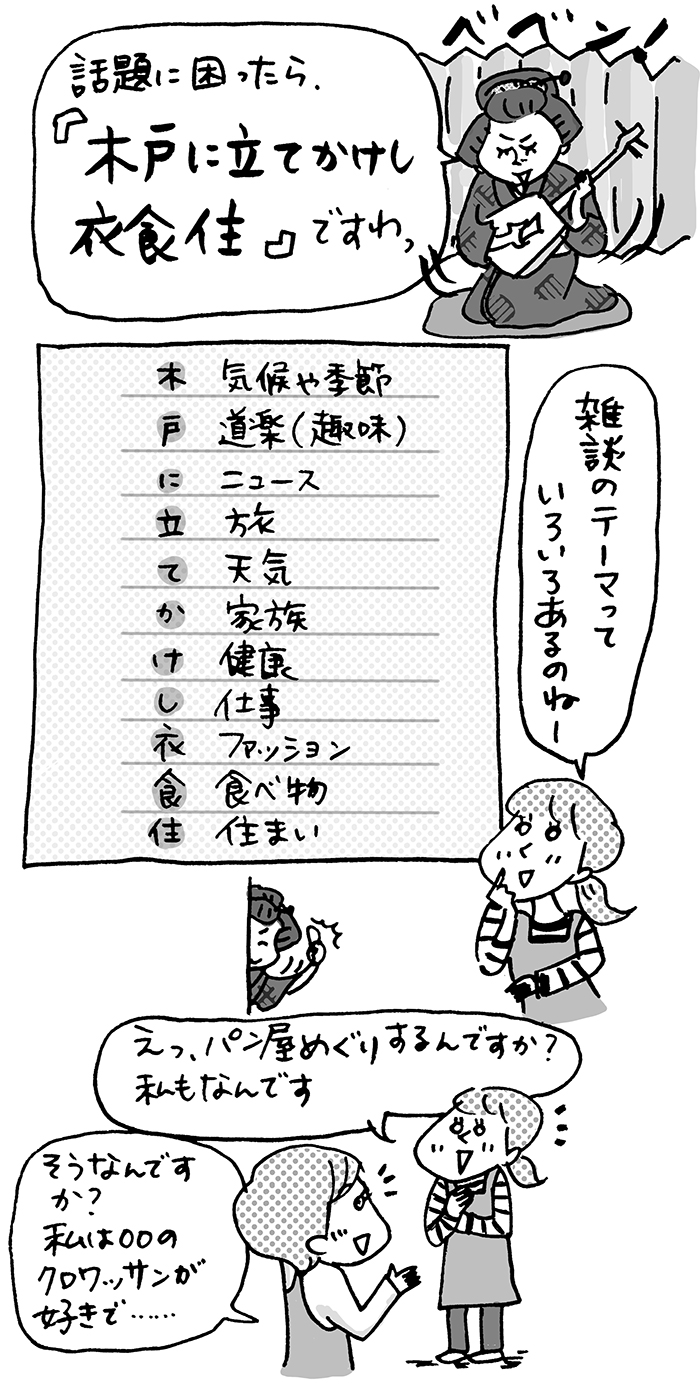 ベベン！
話題に困ったら、
『木戸に立てかけし
衣食住』ですわっ
木 気候や季節
戸 道楽（趣味）
に ニュース
立 旅
て 天気
か 家族
け 健康
し 仕事
衣 ファッション
食 食べ物
住 住まい
雑談のテーマって
いろいろあるのねー
えっ、パン屋めぐりするんですか？
私もなんです
そうなんです
か？
私は○○の
クロワッサンが
好きで……